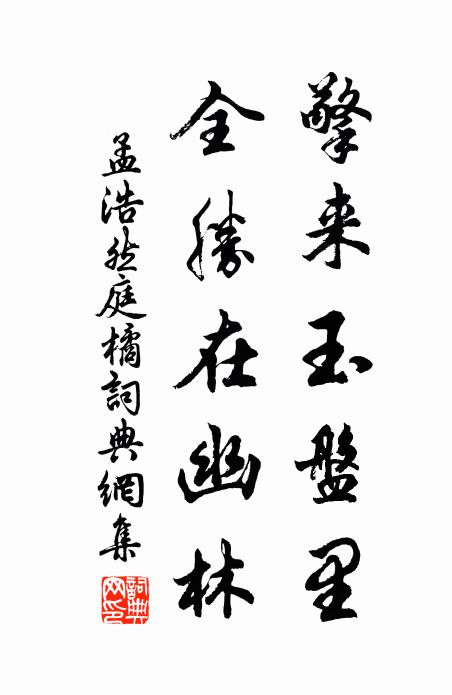 擎来玉盤里
全勝在幽林
孟浩然庭橘詞典網集
詞典网印